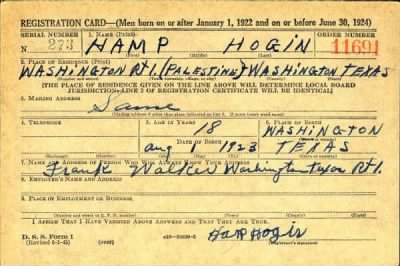 REGISTRATION CARD—(Men born on or after January 1, 1922 and on or before June 30, 1924)
SERIAL NUMBER 1. NAME (Print) ORDER NUMBER
N 273 HAMP HOGIN 11691
(First) (Middle) (Last)
2. PLACE OF RESIDENCE (Print)
WASHINGTON Rt1 (PALESTINE) WASHINGTON TEXAS
(Number and street) (Town, township, village, or city) (County) (State)
[THE PLACE OF RESIDENCE GIVEN ON THE LINE ABOVE WILL DETERMINE LOCAL BOARD
JURISDICTION; LINE 2 OF REGISTRATION CERTIFICATE WILL BE IDENTICAL]
3. MAILING ADDRESS
Same
[Mailing address if other than place indicated on line 2. If same, insert word same]
4. TELEPHONE 5. AGE IN YEARS 6. PLACE OF BIRTH
18 WASHINGTON
DATE OF BIRTH
Aug 1 1923 TEXAS
7. NAME AND ADDRESS OF PERSON WHO WILL ALWAYS KNOW YOUR ADDRESS
Frank Walker Washington Texas Rt 1.
8. EMPLOYER'S NAME AND ADDRESS
9. PLACE OF EMPLOYMENT OR BUSINESS
(Number and street or R. F. D. number) (Town) (County) (State)
I AFFIRM THAT I HAVE VERIFIED ABOVE ANSWERS AND THAT THEY ARE TRUE.
D. S. S. Form 1
(Revised 6-9-42) (over) Hamp Hogin
(Registrant's signature)